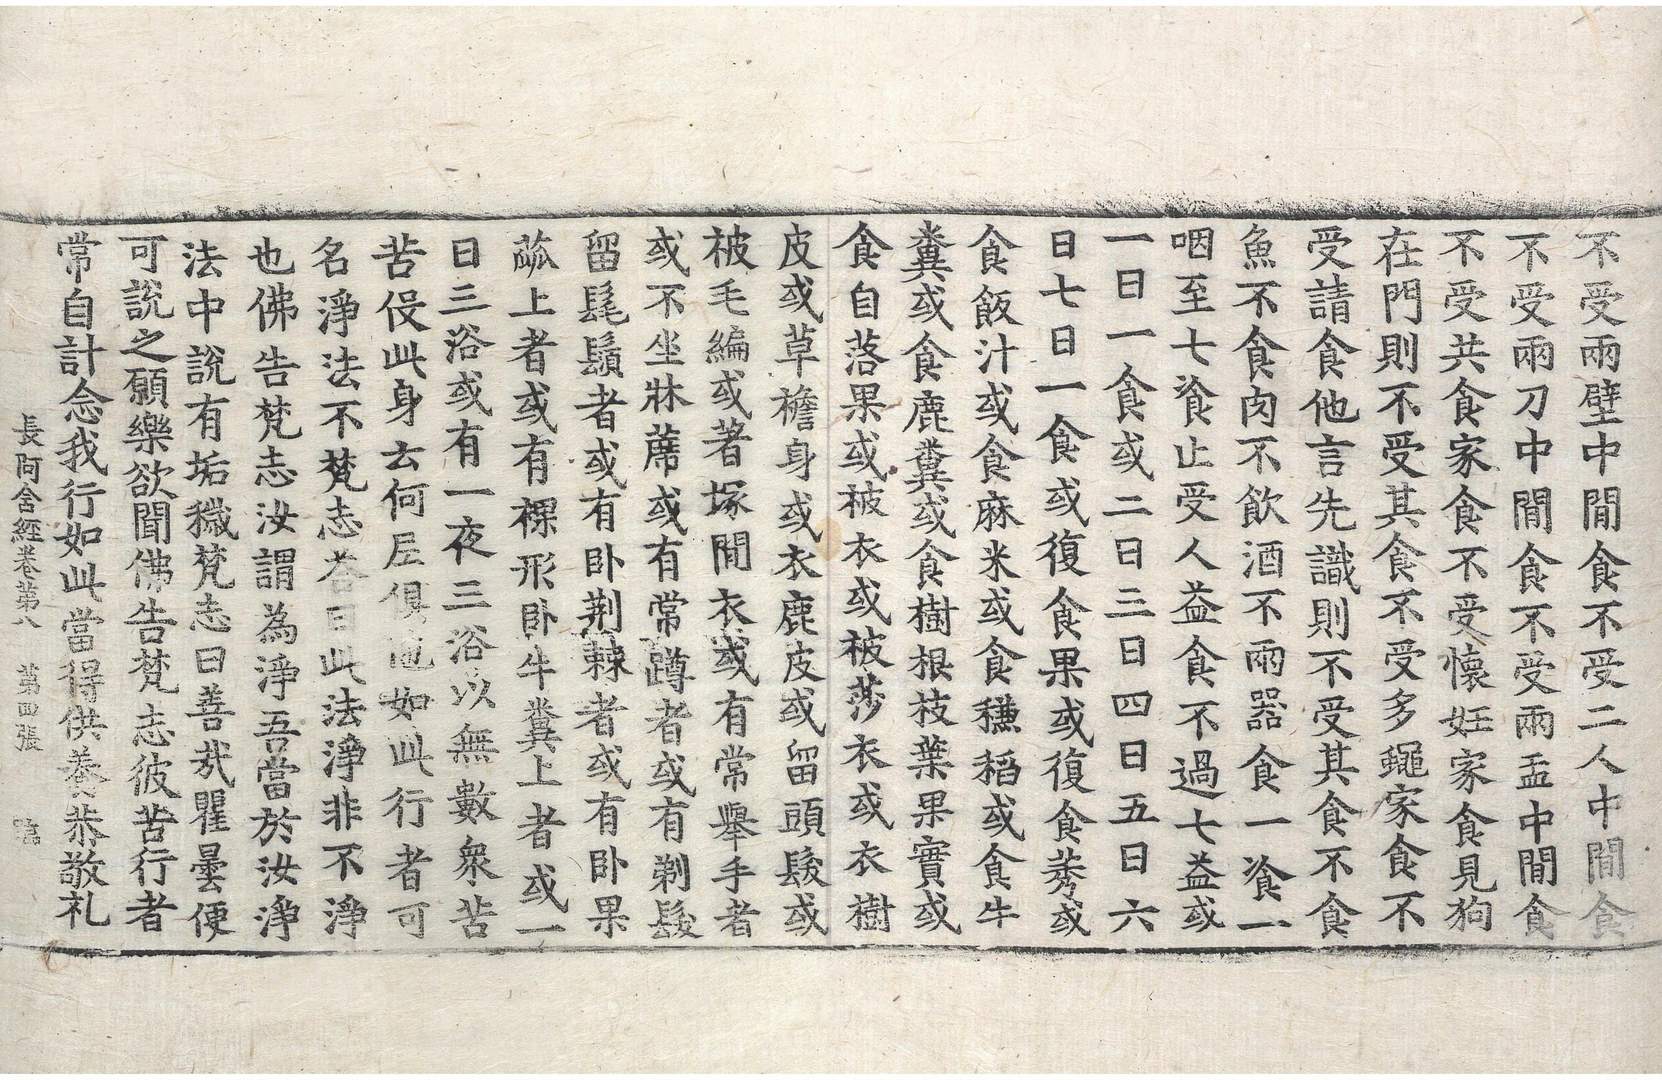 不受兩壁中間食不受二人中間食
不受兩刀中間食不受兩盂中間食
不受共食家食不受懷妊家食見狗
在門則不受其食不受多蠅家食不
受請食他言先識則不受其食不食
魚不食肉不飲酒不兩器食一飡一
咽至七飡止受人益食不過七益或
一日一食或二日三日四日五日六
日七日一食或復食果或復食莠或
食飯汁或食麻米或食𥢶稻或食牛
糞或食鹿糞或食樹根枝葉果實或
食自落果或被衣或被莎衣或衣樹
皮或草襜身或衣鹿皮或留頭髮或
被毛編或著塚間衣或有常舉手者
或不坐牀蓆或有常蹲者或有剃髮
留髦鬚者或有卧荆棘者或有卧果
蓏上者或有裸形卧牛糞上者或一
日三浴或有一夜三浴以無數衆苦
苦伇此身云何尼俱陁如此行者可
名淨法不梵志荅曰此法淨非不淨
也佛告梵志汝謂為淨吾當於汝淨
法中說有垢穢梵志曰善㢤瞿曇便
可說之願樂欲聞佛告梵志彼苦行者
常自計念我行如此當得供養恭敬礼
長阿含經卷第八 第四張